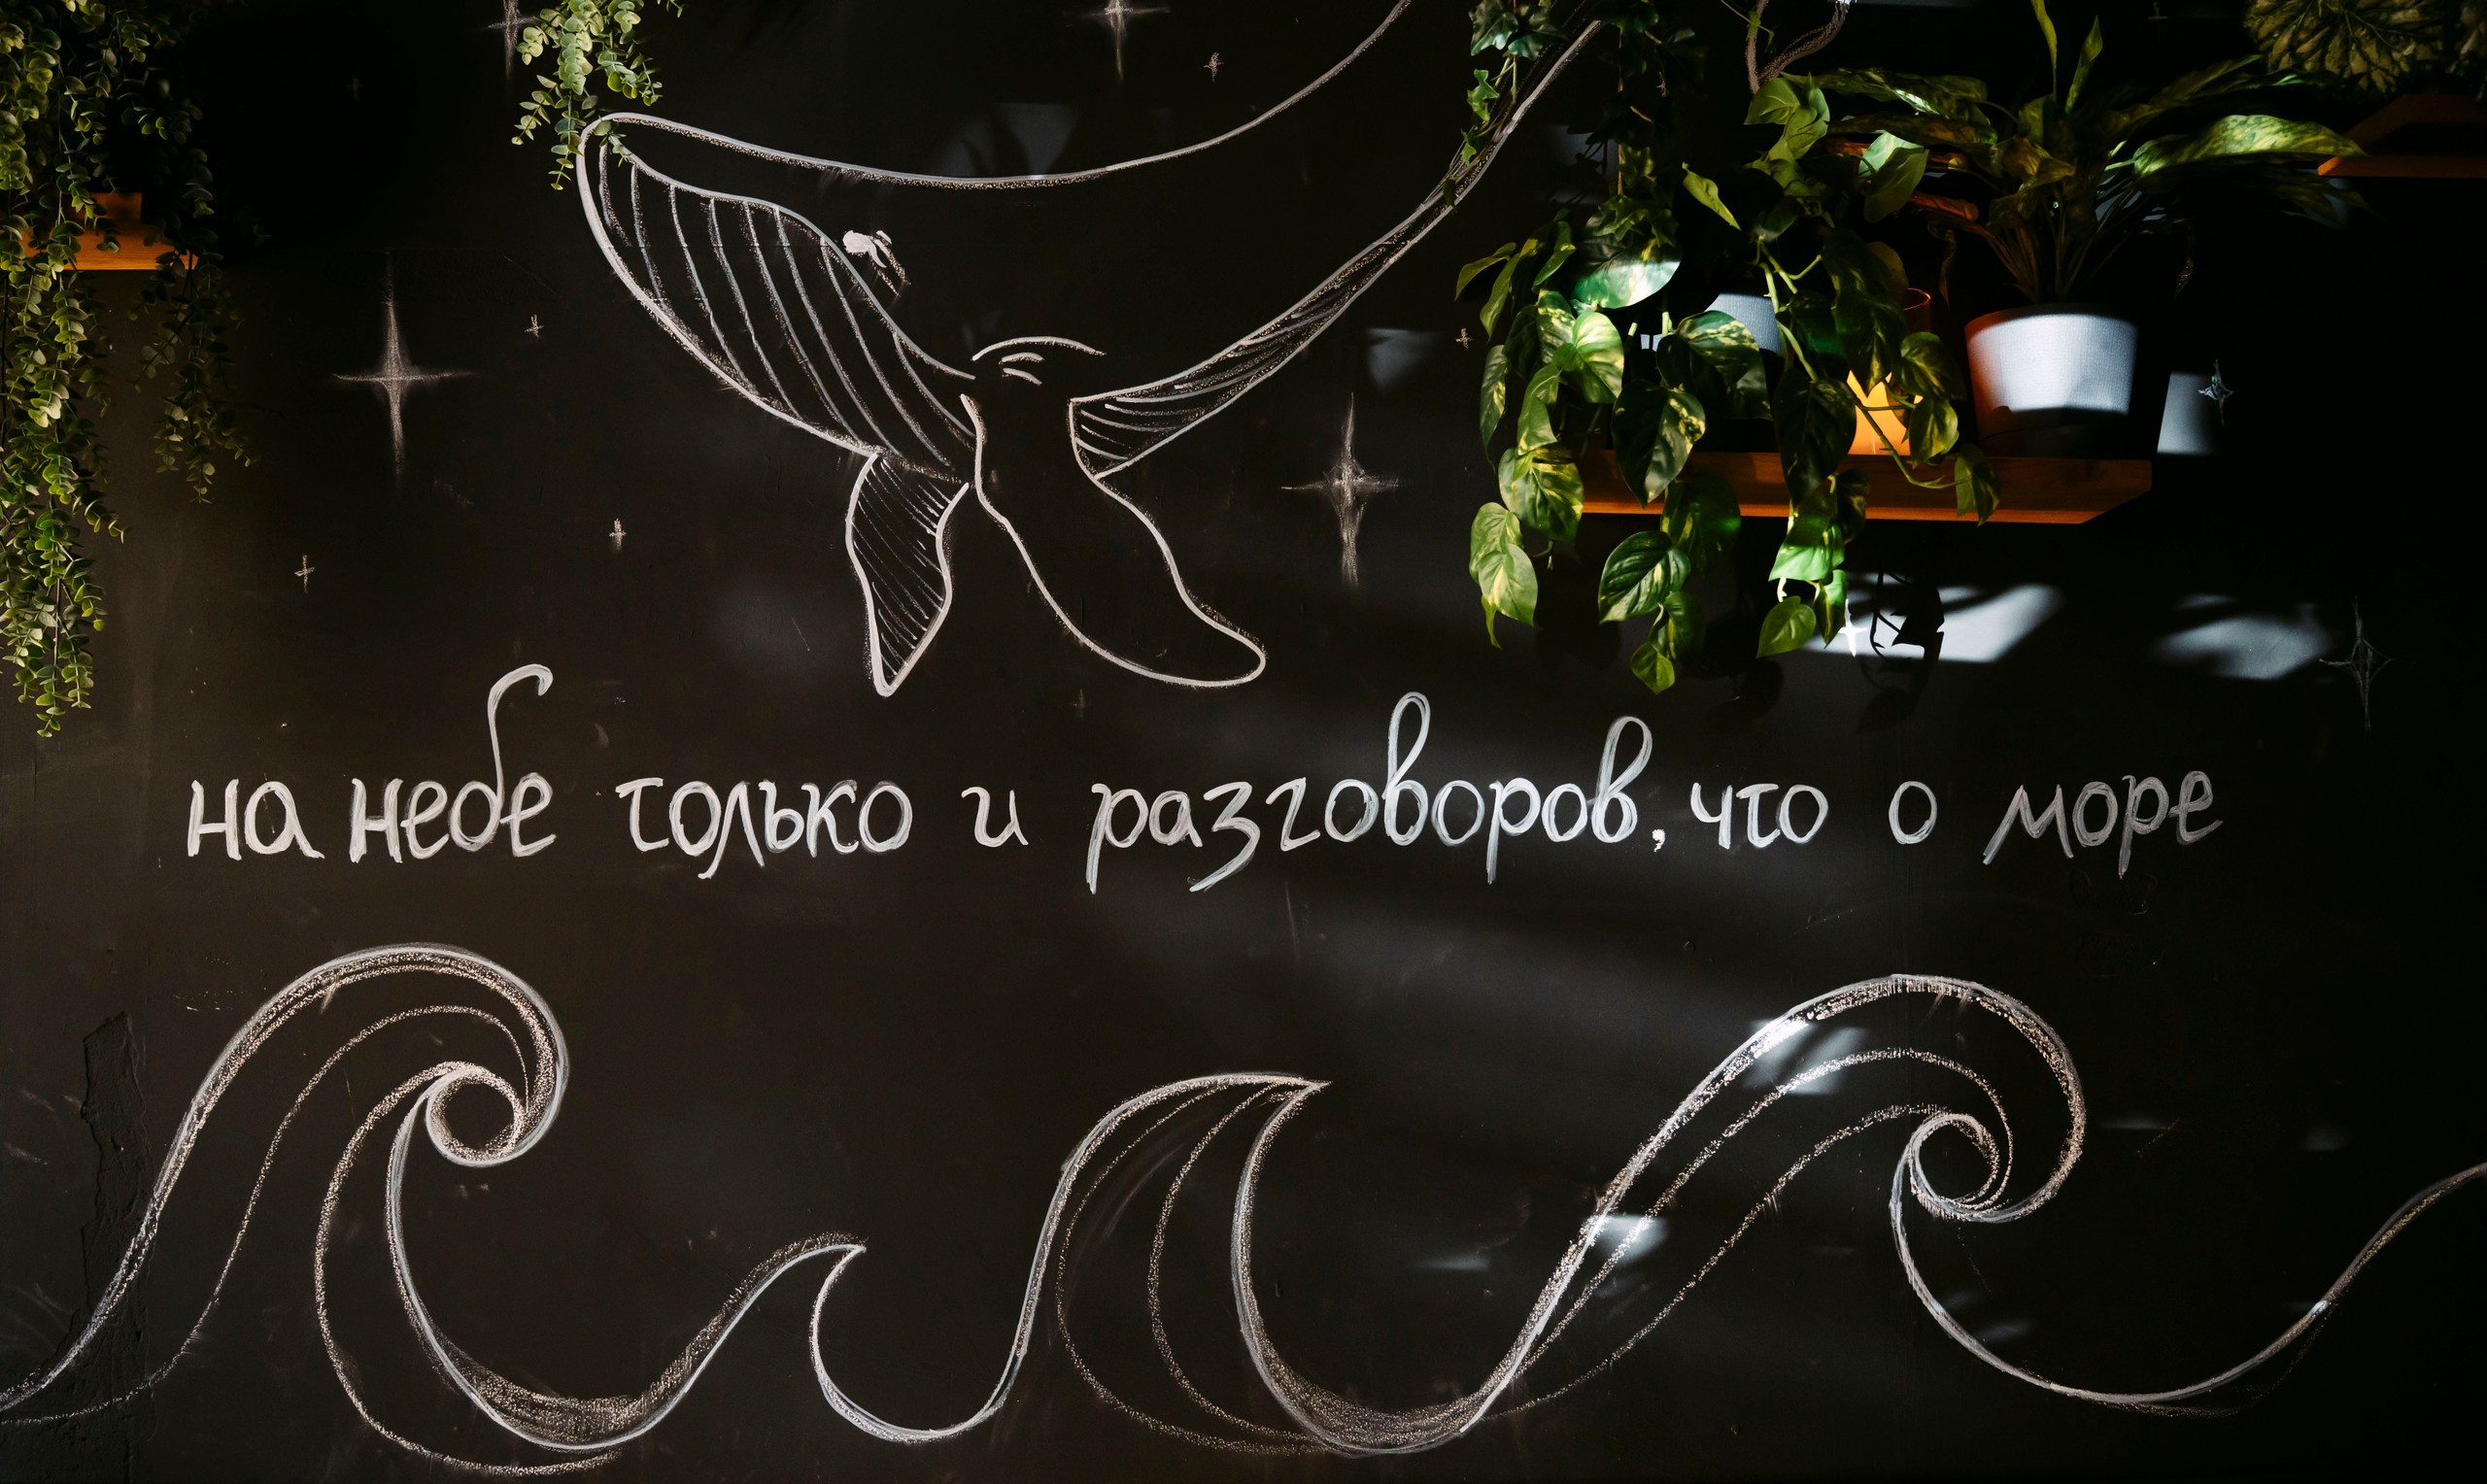 на небе только и разговоров, что о море